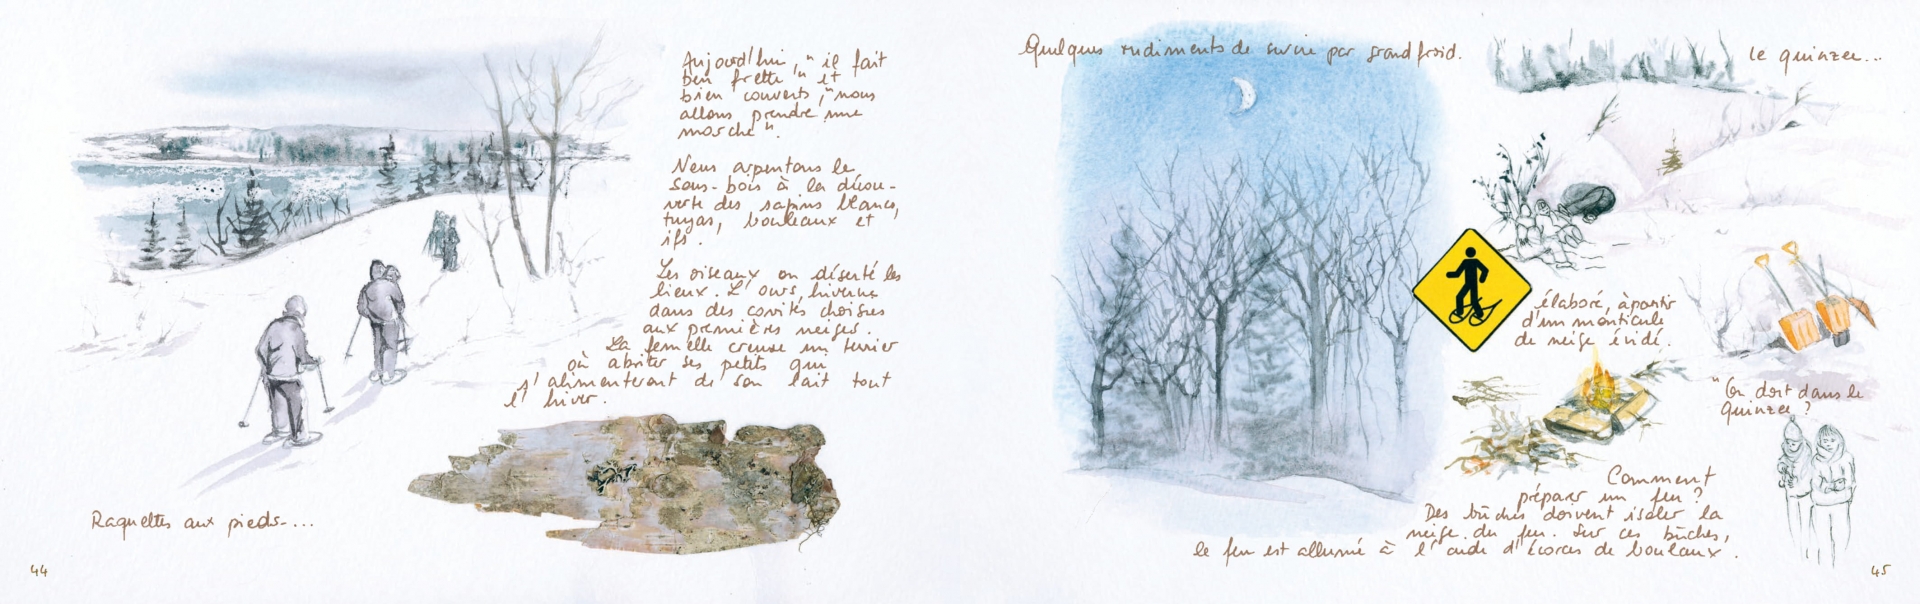 Aujourd'hui, "il fait
ben frette" et
bien couverts, "nous
allons prendre une
marche".
Nous arpentons le
sous-bois à la décou-
verte des sapins blancs,
tuyas, bouleaux et
ifs.
Les oiseaux on déserté les
lieux. L'ours, hiverne
dans des cavités choisies
aux premières neiges.
La femelle creuse un terrier
où abriter ses petits qui
s'alimenteront de son lait tout
l'hiver.
Raquettes aux pieds....
44
Quelques rudiments de survie par grand froid.
le quinzee...
élaboré, à partir
d'un monticule
de neige évidé.
"On dort dans le
quinzee ?
Comment
préparer un feu ?
Des bûches doivent isoler la
neige du feu. Sur ces bûches,
le feu est allumé à l'aide d'écorces de bouleaux.
45